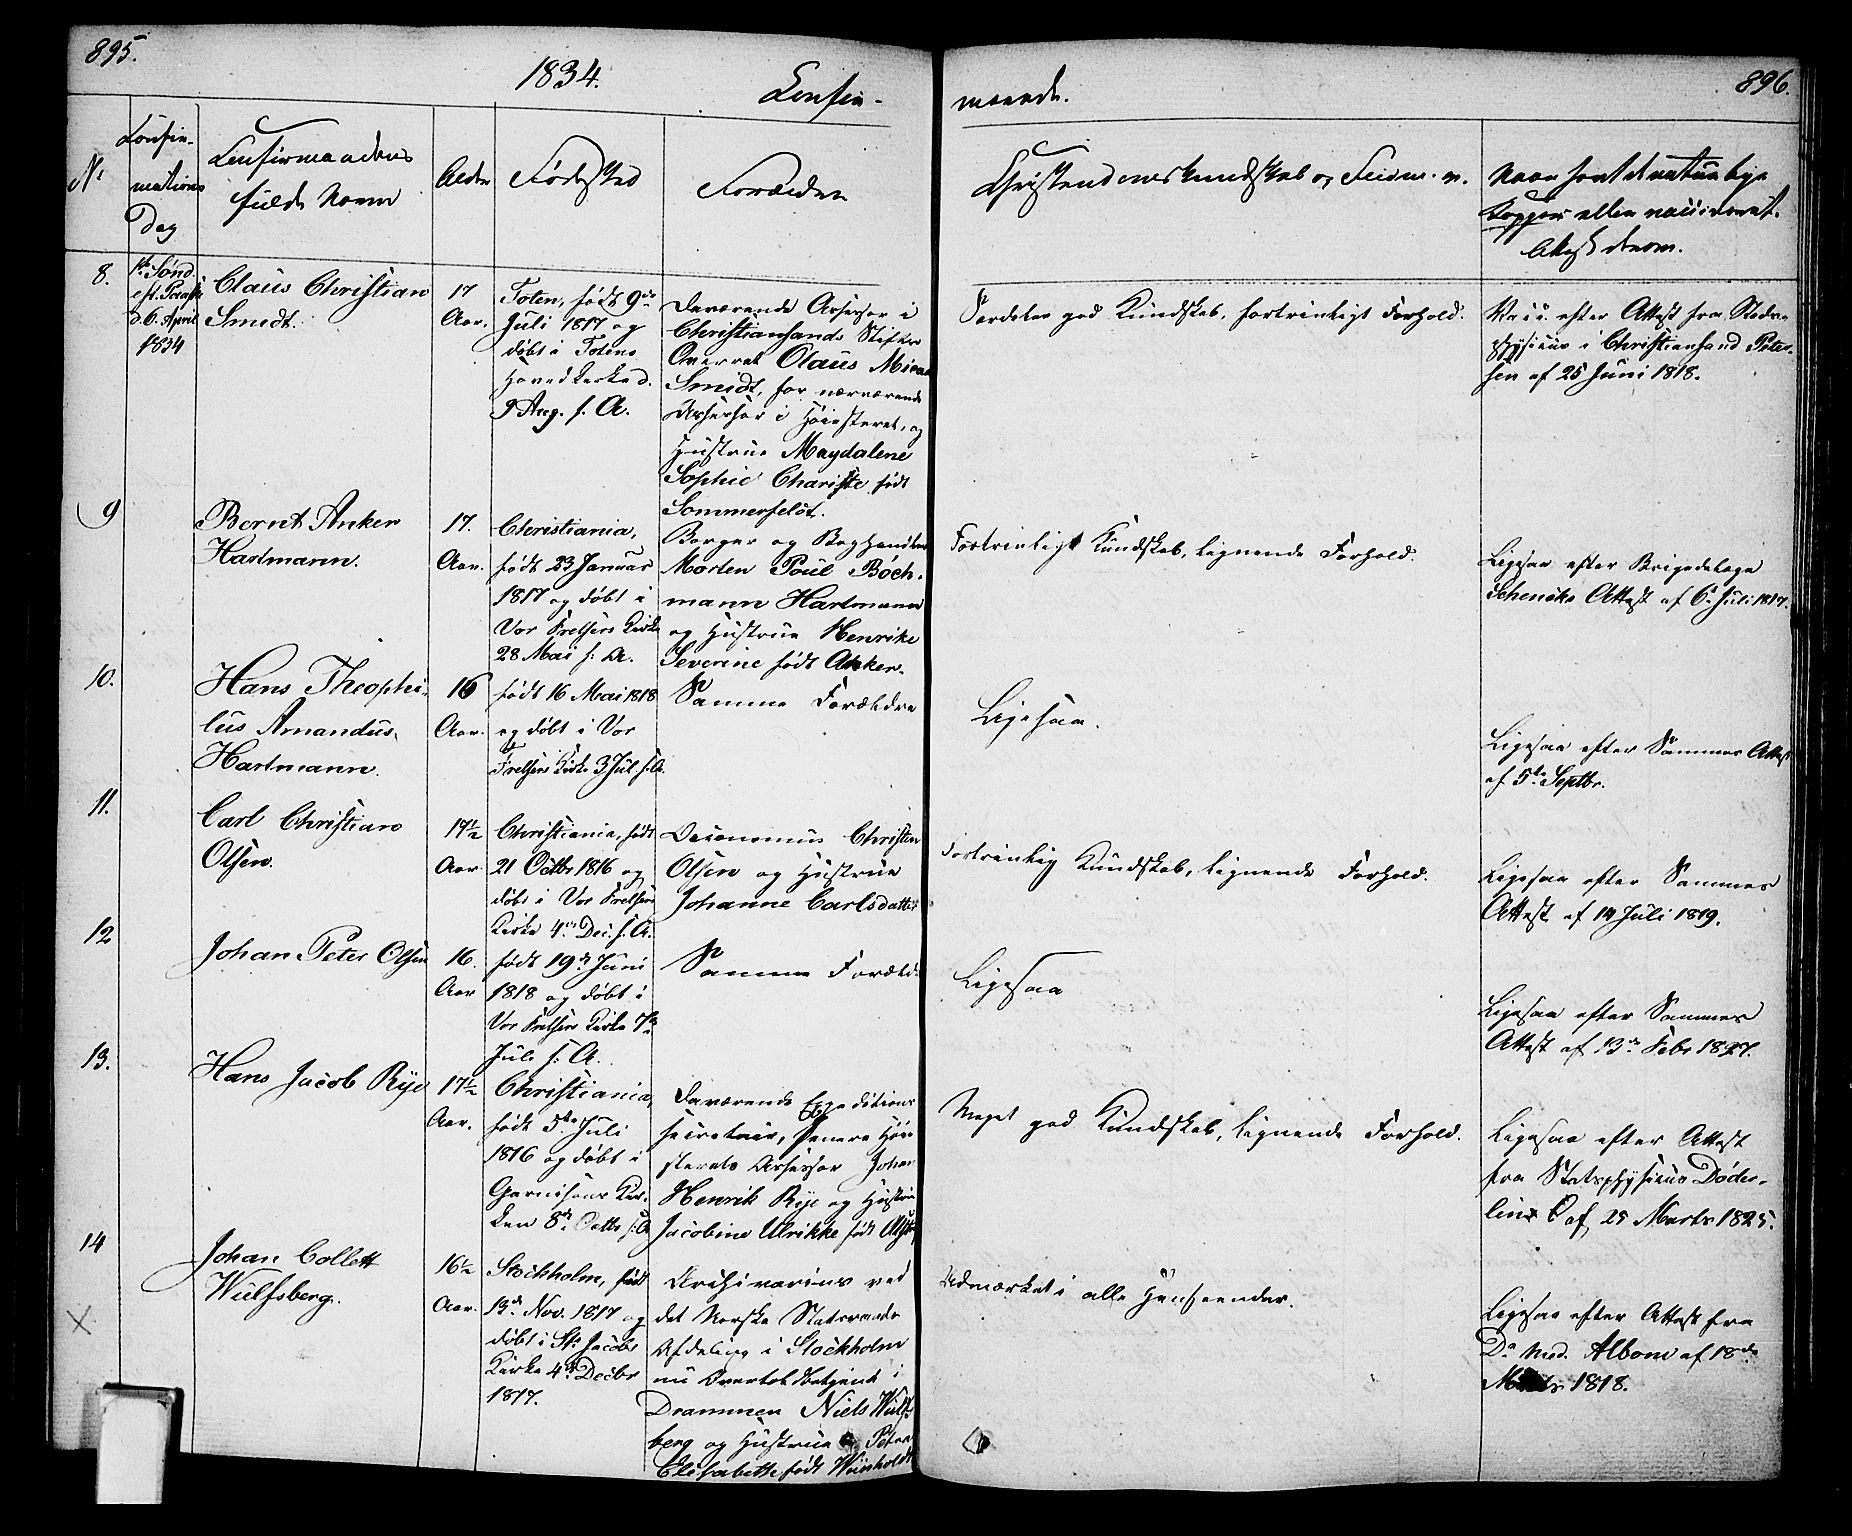 895.
1834.
Confir-
merede.
896.
No
Confir-
mations
Dag
Confirmandens
fulde Navn
Alder
Fødested
Forældre
Christendomskundskab og Forhold
Naar havt de naturlige
Kopper eller vaccineret.
Attest derom.
8.
1ste Sønd.
eft. Paaske
d. 6. April
1834
Claus Christian
Smidt.
17
Aar.
Toten, født 9de
Juli 1817 og
døbt i Totens
Hovedkirke d.
9 Aug. s. A.
Daværende Assessor i
Christiansands Stifts
Overret Claus
Smidt, for nærværende
Assessor i Høiesteret, og
Hustrue Magdalene
Sophie Charlotte født
Sommerfeldt.
Særdeles god Kundskab, fortrinligt Forhold.
Vacc. efter Attest fra Stads-
physicus i Christiansand Peter-
sen af 25 Juni 1818.
9
Bernt Anker
Hartmann.
17.
Aar.
Christiania,
født 23 Januar
1817 og døbt i
Vor Frelsers Kirke
28 Mai s. A.
Borger og Boghandler
Morten Poul Bøch-
mann Hartmann
og Hustrue Henrike
Severine født Anker.
Fortrinligt Kundskab, lignende Forhold.
Ligesaa efter Brigadelæge
Schencks Attest af 6 Juli 1817.
10.
Hans Theophi-
lus Amandus
Hartmann.
16
Aar.
født 16 Mai 1818
og døbt i Vor
Frelsers Kirke 3 Jul. s. A.
Samme Forældre
Ligesaa.
Ligesaa efter Sammes Attest
af 5te Septbr.
11.
Carl Christian
Olsen.
17½
Aar.
Christiania, født
21 Octbr 1816 og
døbt i Vor Frelsers
Kirke 4de Dec. s. A.
Oeconomus Christian
Olsen og Hustrue
Johanne Carlsdatter
Fortrinlig Kundskab, lignende Forhold.
Ligesaa efter Sammes
Attest af 14 Juli 1819.
12
Johan Peter Olsen
16.
Aar
født 19de Juni
1818 og døbt i
Vor Frelsers Kirke 7de
Juli s. A.
Samme Forældr
Ligesaa
Ligesaa efter Sammes
Attest af 13de Febr 1827.
13.
Hans Jacob Rye
17½
Aar.
Christiania,
født 5te Juli
1816 og døbt i
Garnisons Kir-
ken 8de Octbr s. A
Daværende Expeditions
secretair, senere Høie
sterets Assessor Johan
Henrik Rye og Hustrue
Jacobine Ulrikke født
Meget god Kundskab, lignende Forhold.
Ligesaa efter Attest
fra Stadsphysicus Døder-
lin af 25 Marts 1825.
14
Johan Collett
Wulfsberg.
16½
Aar.
Stockholm, født
13de Nov. 1817 og
døbt i St. Jacobs
Kirke 4de Decbr
1817.
Archivarius ved
det Norske Statsraads
Afdeling i Stockholm
nu Overtoldbetjent i
Drammen Niels Wulfs-
berg og Hustrue Petra
Elisabeth født
Udmærket i alle Henseender.
Ligesaa efter Attest fra
Dr. Med. Albom af 18de
Marts 1818.
X